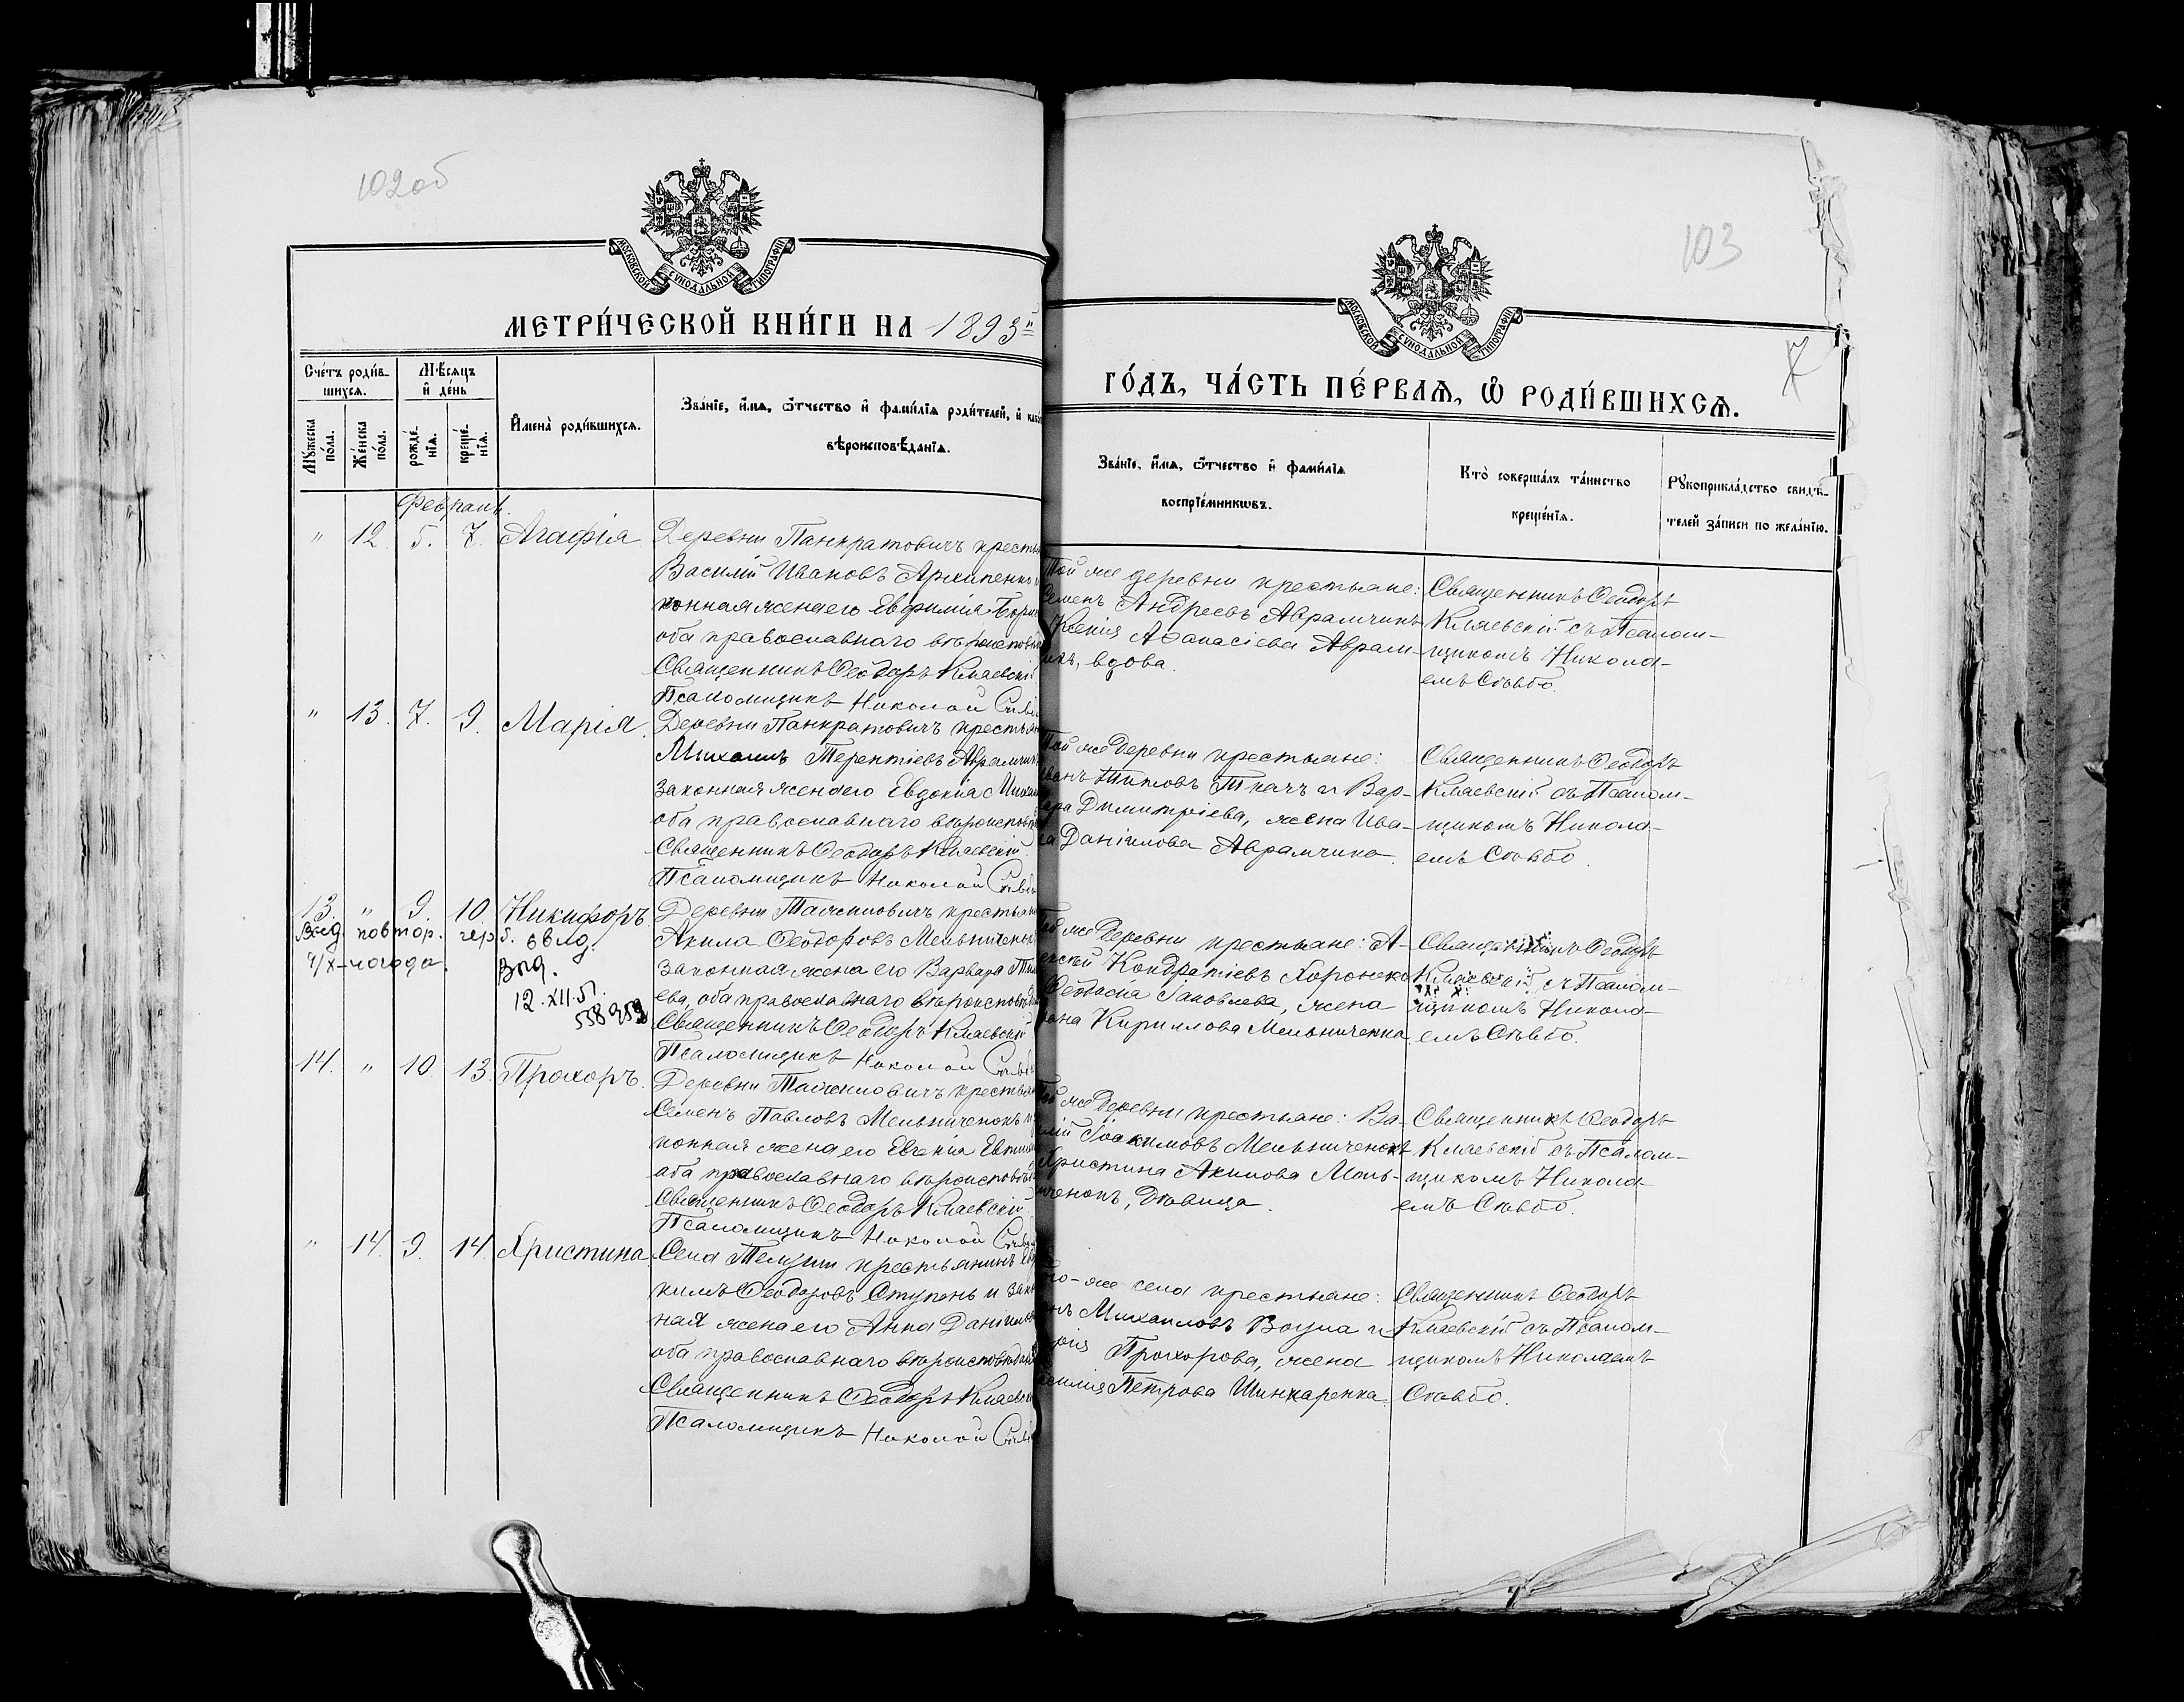 102об
МОСКОВСКОЙ СѴНОДАЛЬНОЙ ТИПОГРАФІИ
МЕТРИ́ЧЕСКОЙ КНИ́ГИ НА 1893й
Сче́тъ роди́в-
шихся.
Мѣ́сяцъ
и҆ де́нь
Мꙋ́жеска
по́ла.
Же́нска
по́ла.
рожде́-
нїѧ.
креще́-
нїѧ.
И҆мена̀ роди́вшихсѧ.
Зва́нїе, и҆́мѧ, ѻ҆́тчество и҆ фами́лїѧ роди́телей, и҆ как
вѣроисповѣ́данїѧ.
Февраль.
" 12. 5. 7. Агафія
Деревни Панкратовичъ кресть
Василій Ивановъ Архипенко
конная жена его Евфимія
оба православнаго вѣроисповѣ
Священникъ Ѳеодоръ Кляевскій
Псаломщикъ Николай Стьв
" 13. 7. 9. Марія.
Деревни Панкратовичъ крестьян
Михаилъ Терентіевъ Аврамчик
законная жена его Евдокія Миха
оба православнаго вѣроисповѣ
Священникъ Ѳеодоръ Кляевскій
Псаломщикъ Николай Стьв
13. " 9. 10. Никифоръ.
выд. повтор. гер. б. овид.
9/X-
Выд.
12.XII.51.
538959
Деревни крестьян
Акила Ѳеодоровъ Мельниченк
законная жена его Варвара Тим
ева, оба православнаго вѣроисповѣд
Священникъ Ѳеодоръ Кляевскій
Псаломщикъ Николай Стьв
14. " 10. 13. Прохоръ.
Деревни крестья
Семенъ Павловъ Мельниченокъ и
конная жена его Евгенія Евтих
оба православнаго вѣроисповѣ
Священникъ Ѳеодоръ Кляевскій
Псаломщикъ Николай Стьв
" 14. 9. 14. Христина
Села крестьянинъ
кимъ Ѳеодоровъ Ступень и зако
ная жена его Анна Даніилов
оба православнаго вѣроисповѣдан
Священникъ Ѳеодоръ Кляевск
Псаломщикъ Николай Стьв
103
7
МОСКОВСКОЙ СѴНОДАЛЬНОЙ ТИПОГРАФІИ
ГО́ДЪ, ЧА́СТЬ ПЕ́РВАѦ, Ѽ РОДИ́ВШИХСѦ.
Зва́нїе, и҆́мѧ, ѻ҆́тчество и҆ фами́лїѧ
воспрїе́мникѡвъ.
Кто̀ соверша́лъ та́инство
креще́нїѧ.
Рꙋкоприкла́дство свидѣ́-
телей за́писи по жела́нїю.
Той же деревни крестьяне:
Семенъ Андреевъ Аврамчикъ
Ксенія Аѳанасіева Аврам-
икъ, вдова.
Священникъ Ѳеодоръ
Кляевскій съ Псалом-
щикомъ Никола-
емъ Стьвбо.
Той же деревни крестьяне:
ванъ Титовъ Ткачъ и Вар-
ара Димитріева, жена Ива-
на Даніилова Аврамчика.
Священникъ Ѳеодоръ
Кляевскій съ Псалом-
щикомъ Никола-
емъ Стьвбо.
Той же деревни крестьяне: А-
ексѣй Кондратіевъ Хоронеко
Ѳеодосія Іаковлева, жена
Кириллова Мельниченка
Священникъ Ѳеодоръ
Кляевскій съ Псалом-
щикомъ Никола-
емъ Стьвбо.
Той же деревни крестьяне: Ва-
илій Іоакимовъ Мельниченокъ
Христина Акилова Мель-
иченокъ, дѣвица.
Священникъ Ѳеодоръ
Кляевскій съ Псалом-
щикомъ Никола-
емъ Стьвбо.
го-же села крестьяне:
Михаиловъ и
Прохорова, жена
асилія Петрова Шинкаренка.
Священникъ Ѳеодоръ
Кляевскій съ Псалом-
щикомъ Николаемъ
Стьвбо.